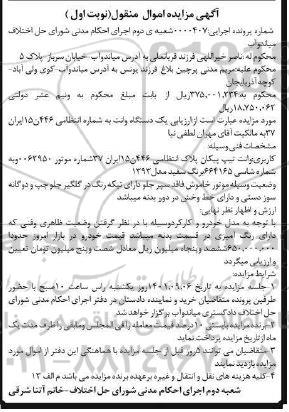 آگهی مزایده اموال منقول(نوبت اول )
شماره پرونده اجرایی:۰۰۰۰۴۰۷شعبه ی دوم اجرای احکام مدنی شورای حل اختلاف
میاندوآب
محکوم له:ناصر خیراللهی فرزند قربانعلی به آدرس میاندوآب-خیابان سرباز-پلاک ۵
محکوم علیه:مریم مدنی پرچین بلاغ فرزند یونس به آدرس میاندوآب-کوی ولی آباد-
کوچه آذربایجان
محکوم به:۳۷۵,۰۰۱,۲۳۴ریال از بابت مبلغ محکوم به ونیم عشر دولتی
۱۸,۷۵۰,۰۶۲ریال
مورد مزایده عبارت است ازارزیابی یک دستگاه وانت به شماره انتظامی ۴۴۶ن۱۵ایران
۳۷به مالکیت آقای مهران لطفی نیا
مشخصات فنی وسیله:
کاربری:وانت تیپ پیکان پلاک انتظامی ۴۴۶ن۱۵ایران ۳۷شماره موتور ۰۰۶۲۹۵۰وبه
شماره شاسی ۶۶۴۱۶۵رنگ سفید مدل۱۳۹۳
وضعیت وسیله:موتور خاموش فاقد سپر جلو دارای شبکه رنگ در گلگیر جلو چپ و دوگانه
سوز دستی و دارای خط وخش در دور بدنه میباشد
ارزش و اظهار نظر نهایی:
با توجه به مدل خودرو و کارکردوسیله با در نظر گرفتن وضعیت ظاهری وفنی که
دارای رنگ آمیزی بدنه میباشد قیمت خودرو در بازار امروز حدودا
۶۵۰,۰۰۰,۰۰۰ششصد وپنجاه میلیون ریال معادل شصت وپنج میلیون تومان تعیین
و ارزیابی میگردد
شرایط مزایده:
۱ جلسه مزایده به تاریخ ۱۴۰۱,۰۹,۰۶روز یکشنبه راس ساعت ۱۰صبح با حضور
طرفین پرونده متقاضیان خرید و نماینده دادستان در دفتر اجرای احکام مدنی شورای
حل اختلاف دادگستری میاندوآب برگزار خواهد شد
۲ برنده مزایده بایستی ۱۰درصد قیمت معامله رافی المجلس ومابقی راظرف مدت یک
ماه ازتاریخ مزایده پرداخت نماید
۳ متقاضیان می توانند ۵روز قبل از جلسه مزایده با هماهنگی این دفتر از اموال مورد
مزایده بازدید نمایند
۴-کلیه هزینه های نقل و انتقال و غیره برعهده برنده مزایده می باشد م الف ۱۳
شعبه دوم اجرای احکام مدنی شورای حل اختلاف-خانم آتنا شرقی